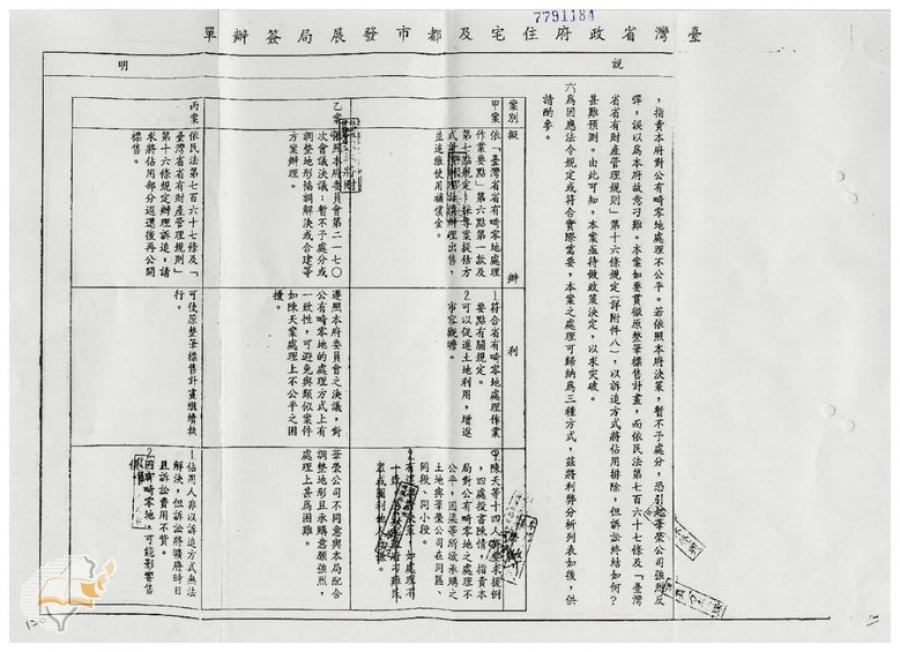 7791184
臺灣省政府住宅及都市發展局簽辦單
說明
，指責本府對公有畸零地處理不公平。若依照本府決策，暫不予處分，恐引起華榮公司強烈反
彈，誤以為本府故意刁難。本案如要貫徹原整筆標售計畫，而依民法第七百六十七條及「臺灣
省省有財產管理規則」第十六條規定（詳附件八），以訴追方式將佔用排除，但訴訟終結如何？
甚難預測。由此可知，本案亟待做政策決定，以求突破。
六為因應法令規定或符合實際需要，本案之處理可歸納為三種方式，茲將利弊分析列表如後，供
請酌參。
案別擬辦
利
甲案
依「臺灣省省有畸零地處理
作業要點」第六點第一款及
第七點規定，採專案提估方
辦理出售，
並追繳使用補償金。
1.符合省有畸零地處理作業
要點有關規定。
2.可以促進土地利用，增進
市容觀瞻。
陳天等十四人要求援例
，四處投書陳情，指責本
局對公有畸零地之處理不
公平，因渠等所欲承購之
土地與華榮公司在同區、
同段、同小段。
乙案
依照本府委員會第二一七〇
次會議決議：暫不予處分或
調整地形協調解決或合建等
方案辦理。
遵照本府委員會之決議，對
公有畸零地的處理方式上有
一致性，可避免與類似案件
如陳天案處理上不公平之困
擾。
華榮公司不同意與本局配合
調整地形且承購意願強烈，
處理上甚為困難。
丙案
依民法第七百六十七條及「
臺灣省省有財產管理規則」
第十六條規定辦理訴追，請
求將佔用部分返還後再公開
標售。
可使原整筆標售計畫繼續執
行。
1.佔用人非以訴追方式無法
解決，但訴訟將曠廢時日
且訴訟費用不貲。
畸零地，可能影響售